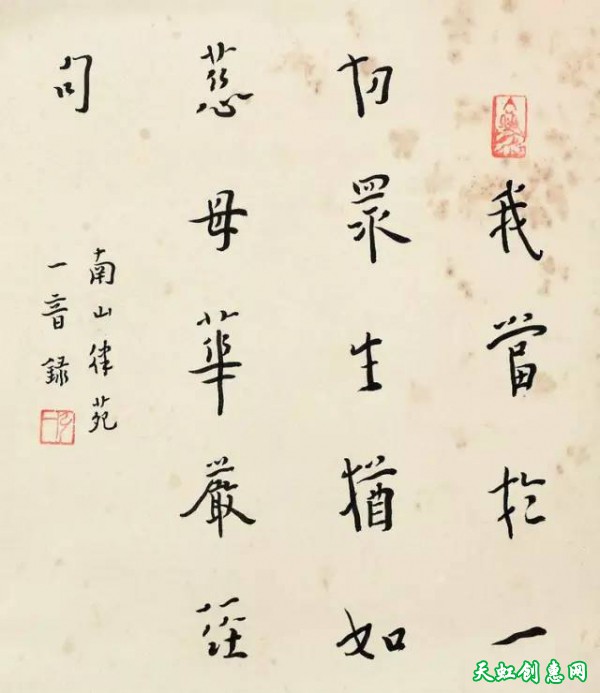 我當於一
切眾生猶如
慈母華嚴經
句
南山律苑
一音錄
天虹创惠网